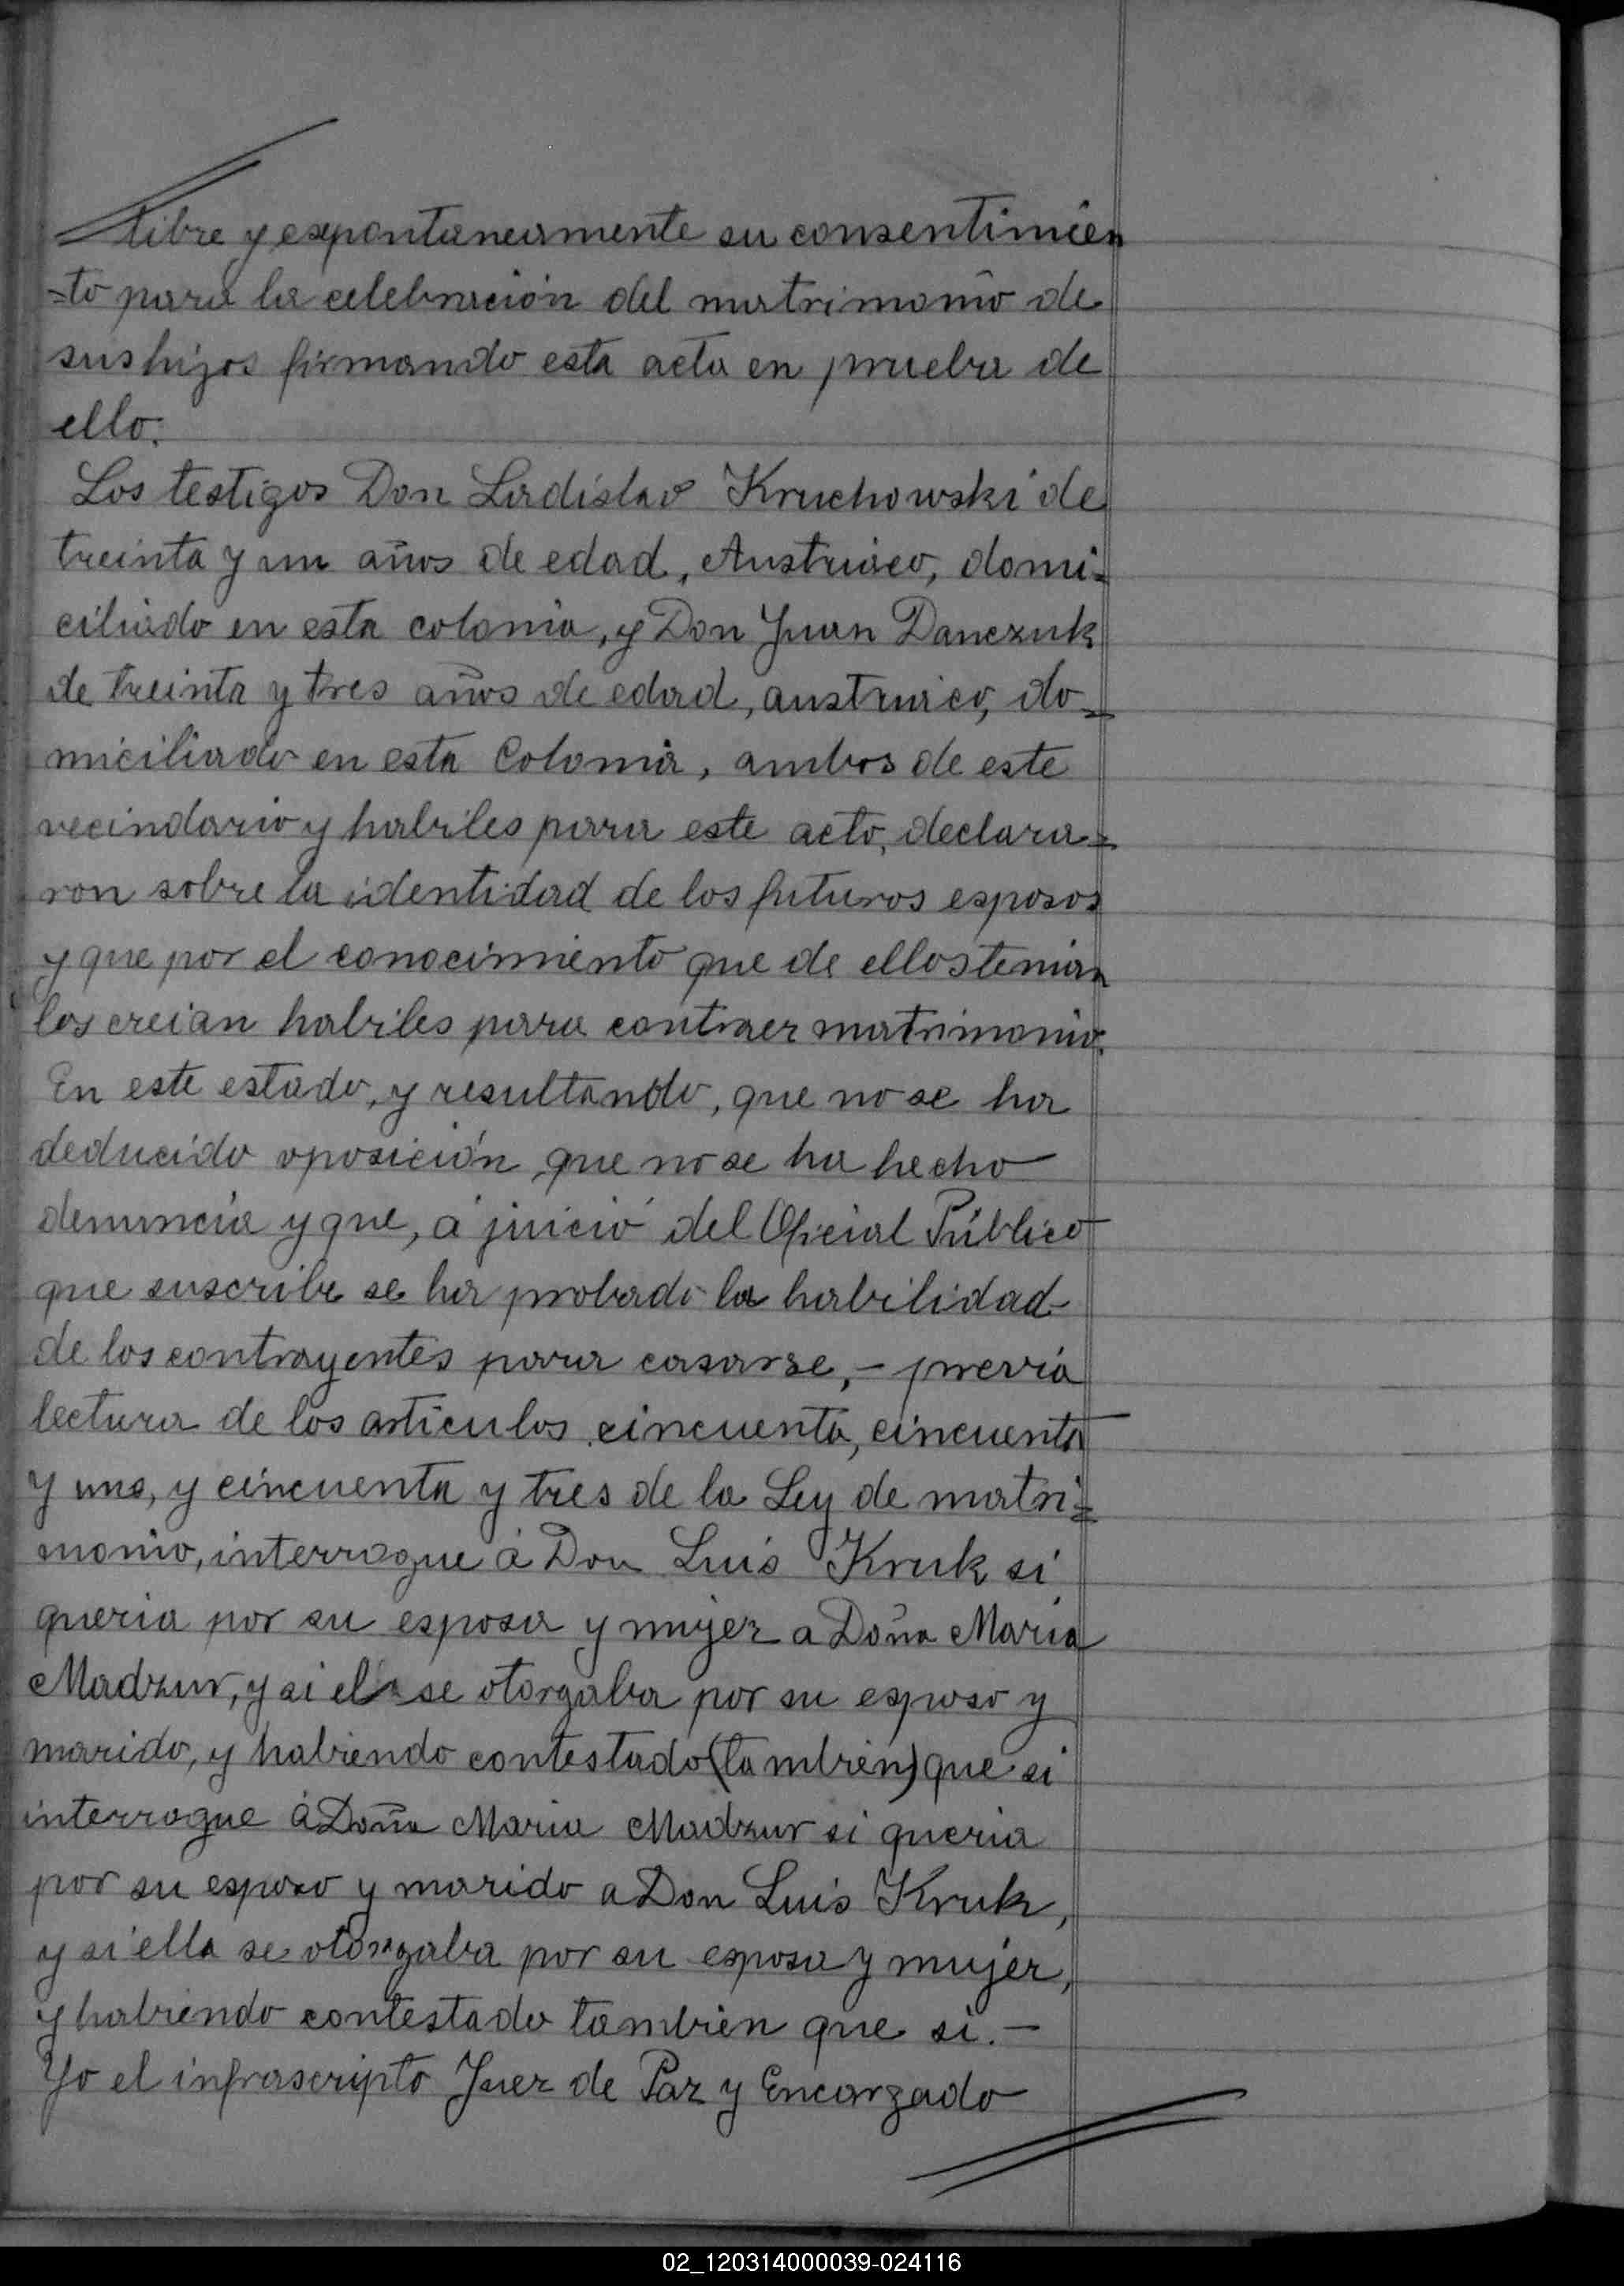 libre y espontaneamente su consentimien
=to para la celebración del matrimonio de
sus hijos firmando esta acta en prueba de
ello.
Los testigos Don Ladislao Kruchowski de
treinta y un años de edad, Austriaco, domi=
ciliado en esta colonia, y Don Juan Danczuk
de treinta y tres años de edad, austriaco, do=
miciliado en esta Colonia, ambos de este
vecindario y habiles para este acto, declara=
ron sobre la identidad de los futuros esposos
y que por el conocimiento que de ellos tenian
los creian habiles para contraer matrimonio.
En este estado, y resultando, que no se ha
deducido oposición que no se ha hecho
denuncia y que, á juició del Oficial Público
que suscribe se ha probado la habilidad
de los contrayentes para casarse, – previa
lectura de los articulos cincuenta, cincuenta
y uno, y cincuenta y tres de la Ley de matri=
monio, interrogue á Don Luis Kruk si
queria por su esposa y mujer a Doña Maria
Madzur, y si el se otorgaba por su esposo y
marido, y habiendo contestado (tambien) que si
interrogue á Doña Maria Madzur si queria
por su esposo y marido a Don Luis Kruk,
y si ella se otorgaba por su esposa y mujer,
y habiendo contestado tambien que si. –
Yo el infrascripto Juez de Paz y Encargado
02_120314000039-024116